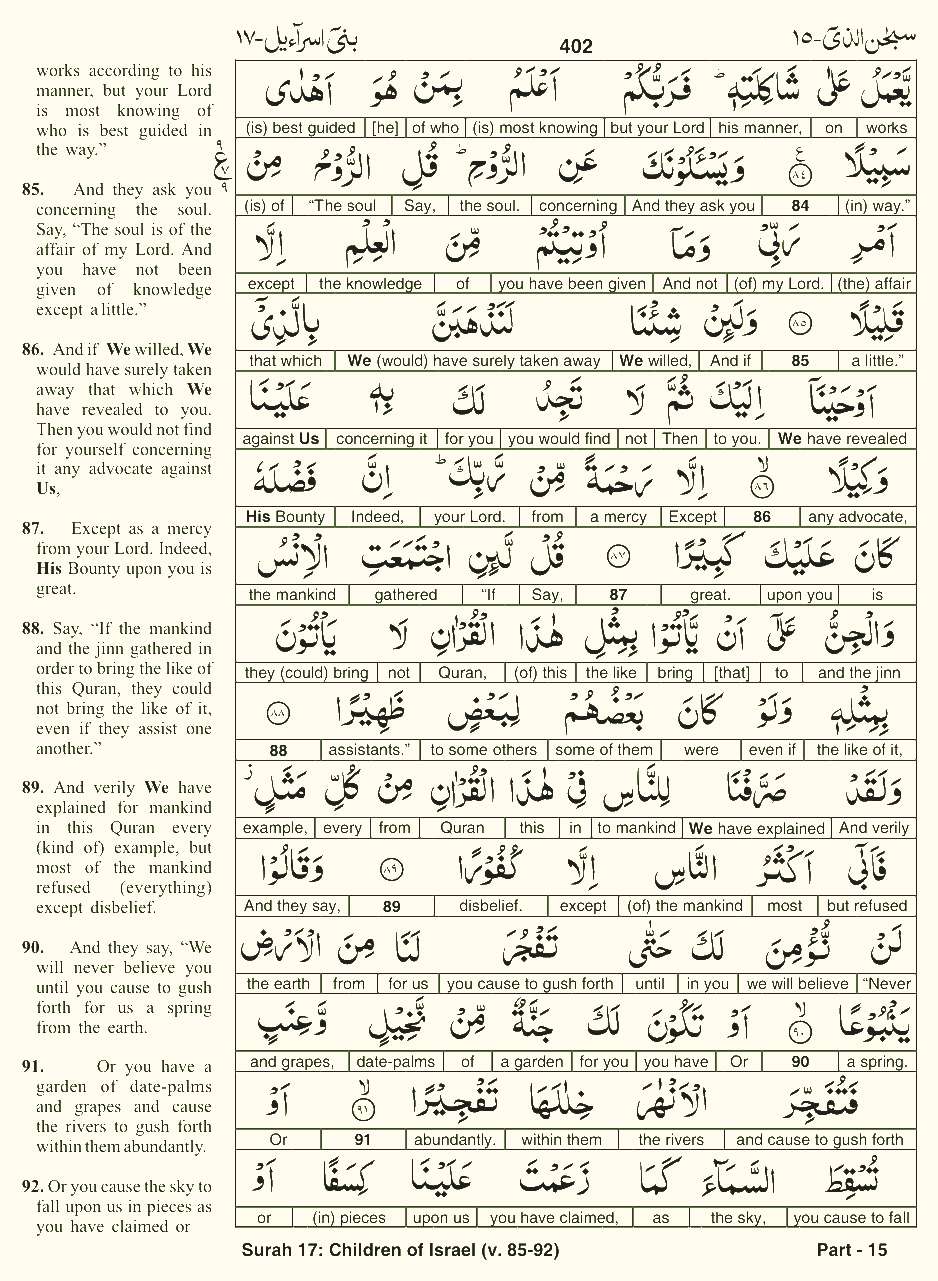 بنیٓ اسرآءیل-١٧ 402 سبحٰن الذیٓ-١٥
works according to his
manner, but your Lord
is most knowing of
who is best guided in
the way.”
85. And they ask you
concerning the soul.
Say, “The soul is of the
affair of my Lord. And
you have not been
given of knowledge
except a little.”
86. And if We willed, We
would have surely taken
away that which We
have revealed to you.
Then you would not find
for yourself concerning
it any advocate against
Us,
87. Except as a mercy
from your Lord. Indeed,
His Bounty upon you is
great.
88. Say, “If the mankind
and the jinn gathered in
order to bring the like of
this Quran, they could
not bring the like of it,
even if they assist one
another.”
89. And verily We have
explained for mankind
in this Quran every
(kind of) example, but
most of the mankind
refused (everything)
except disbelief.
90. And they say, “We
will never believe you
until you cause to gush
forth for us a spring
from the earth.
91. Or you have a
garden of date-palms
and grapes and cause
the rivers to gush forth
within them abundantly.
92. Or you cause the sky to
fall upon us in pieces as
you have claimed or
يَّعْمَلُ عَلٰى شَاكِلَتِهٖ ؕ فَرَبُّكُمْ اَعْلَمُ بِمَنْ هُوَ اَهْدٰى
(is) best guided [he] of who (is) most knowing but your Lord his manner, on works
سَبِيْلًا ٨٤ وَيَسْـَٔلُوْنَكَ عَنِ الرُّوْحِ ؕ قُلِ الرُّوْحُ مِنْ ٩ ع ٧ ٩
(is) of “The soul Say, the soul. concerning And they ask you 84 (in) way.”
اَمْرِ رَبِّيْ وَمَاۤ اُوْتِيْتُمْ مِّنَ الْعِلْمِ اِلَّا
except the knowledge of you have been given And not (of) my Lord. (the) affair
قَلِيْلًا ٨٥ وَلَئِنْ شِئْنَا لَنَذْهَبَنَّ بِالَّذِيْۤ
that which We (would) have surely taken away We willed, And if 85 a little.”
اَوْحَيْنَاۤ اِلَيْكَ ثُمَّ لَا تَجِدُ لَكَ بِهٖ عَلَيْنَا
against Us concerning it for you you would find not Then to you. We have revealed
وَكِيْلًا ٨٦ اِلَّا رَحْمَةً مِّنْ رَّبِّكَ ؕ اِنَّ فَضْلَهٗ
His Bounty Indeed, your Lord. from a mercy Except 86 any advocate,
كَانَ عَلَيْكَ كَبِيْرًا ٨٧ قُلْ لَّئِنِ اجْتَمَعَتِ الْاِنْسُ
the mankind gathered “If Say, 87 great. upon you is
وَالْجِنُّ عَلٰۤى اَنْ يَّاْتُوْا بِمِثْلِ هٰذَا الْقُرْاٰنِ لَا يَاْتُوْنَ
they (could) bring not Quran, (of) this the like bring [that] to and the jinn
بِمِثْلِهٖ وَلَوْ كَانَ بَعْضُهُمْ لِبَعْضٍ ظَهِيْرًا ٨٨
88 assistants.” to some others some of them were even if the like of it,
وَلَقَدْ صَرَّفْنَا لِلنَّاسِ فِيْ هٰذَا الْقُرْاٰنِ مِنْ كُلِّ مَثَلٍ ز
example, every from Quran this in to mankind We have explained And verily
فَاَبٰۤى اَكْثَرُ النَّاسِ اِلَّا كُفُوْرًا ٨٩ وَقَالُوْا
And they say, 89 disbelief. except (of) the mankind most but refused
لَنْ نُّؤْمِنَ لَكَ حَتّٰى تَفْجُرَ لَنَا مِنَ الْاَرْضِ
the earth from for us you cause to gush forth until in you we will believe “Never
يَنْۢبُوْعًا ٩٠ اَوْ تَكُوْنَ لَكَ جَنَّةٌ مِّنْ نَّخِيْلٍ وَّعِنَبٍ
and grapes, date-palms of a garden for you you have Or 90 a spring.
فَتُفَجِّرَ الْاَنْهٰرَ خِلٰلَهَا تَفْجِيْرًا ٩١ اَوْ
Or 91 abundantly. within them the rivers and cause to gush forth
تُسْقِطَ السَّمَآءَ كَمَا زَعَمْتَ عَلَيْنَا كِسَفًا اَوْ
or (in) pieces upon us you have claimed, as the sky, you cause to fall
Surah 17: Children of Israel (v. 85-92) Part - 15